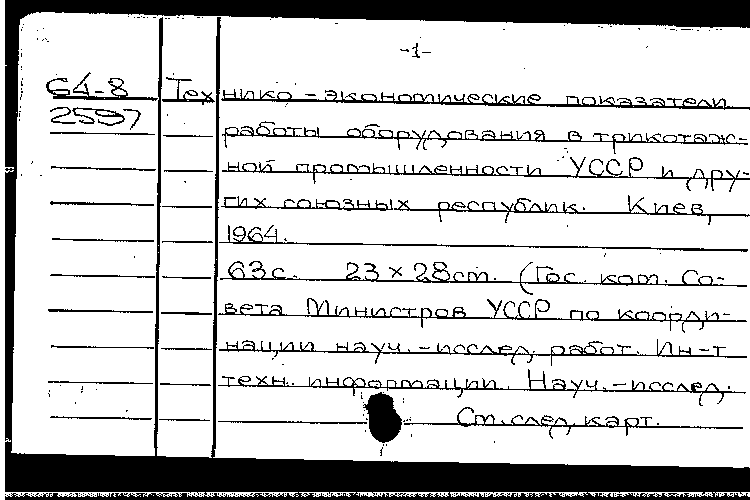 -1-
64-8 Технико-экономические показатели
2597 работы оборудования в трикотаж-
ной промышленности УССР и дру-
гих союзных республик. Киев,
1964.
63с. 23×28см. (Гос. ком. Со-
вета Министров УССР по коорди-
нации науч.-исслед. работ. Ин-т
техн. информации. Науч.-исслед.
См.след.карт.